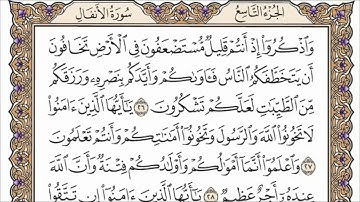 الجزء التاسع
سورة الأنفال
وَاذْكُرُوا إِذْ أَنْتُمْ قَلِيلٌ مُسْتَضْعَفُونَ فِي الْأَرْضِ تَخَافُونَ
أَنْ يَتَخَطَّفَكُمُ النَّاسُ فَآوَىٰكُمْ وَأَيَّدَكُمْ بِنَصْرِهِ وَرَزَقَكُمْ
مِنَ الطَّيِّبَٰتِ لَعَلَّكُمْ تَشْكُرُونَ ٢٦ يَٰأَيُّهَا الَّذِينَ ءَامَنُوا
لَا تَخُونُوا اللَّهَ وَالرَّسُولَ وَتَخُونُوا أَمَٰنَٰتِكُمْ وَأَنْتُمْ تَعْلَمُونَ
٢٧ وَاعْلَمُوا أَنَّمَا أَمْوَٰلُكُمْ وَأَوْلَٰدُكُمْ فِتْنَةٌ وَأَنَّ اللَّهَ
عِنْدَهُ أَجْرٌ عَظِيمٌ ٢٨ يَٰأَيُّهَا الَّذِينَ ءَامَنُوا إِنْ تَتَّقُوا